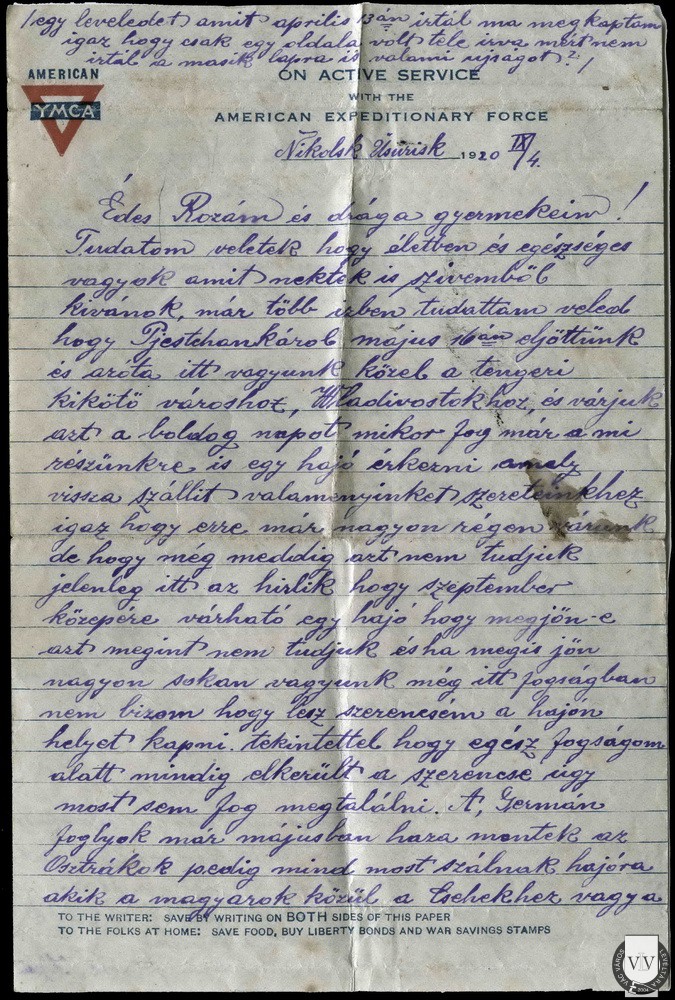 /egy leveledet amit április 13án irtál ma megkaptam
igaz hogy csak egy oldala volt tele irva mért nem
irtál a masik lapra is valami ujságot? /
AMERICAN
YMCA
ON ACTIVE SERVICE
WITH THE
AMERICAN EXPEDITIONARY FORCE
Nikolsk Usurisk 1920 IX/4.
Édes Rozám és drága gyermekeim!
Tudatom veletek hogy életben és egészséges
vagyok amit nektek is szivemből
kivánok, már több izben tudattam veled
hogy Pjestchankárol május 16án eljöttünk
és azóta itt vagyunk közel a tengeri
kikötö városhoz, Wladivostokhoz, és várjuk
azt a boldog napot mikor fog már a mi
részünkre is egy hajó érkezni amely
vissza szállit valamenyinket szereteinkhez
igaz hogy erre már nagyon régen várunk
de hogy még meddig azt nem tudjuk
jelenleg itt az hirlik hogy szeptember
közepére várható egy hajó hogy megjön-e
azt megint nem tudjuk és ha megis jön
nagyon sokan vagyunk még itt fogságban
nem bizom hogy lesz szerencsém a hajon
helyet kapni. tekintettel hogy egész fogságom
alatt mindig elkerült a szerencse ugy
most sem fog megtalálni. A, Germán
foglyok már májusban haza mentek az
Osztrákok pedig mind most szálnak hajóra
akik a magyarok közül a Csehekhez vagy a
TO THE WRITER: SAVE BY WRITING ON BOTH SIDES OF THIS PAPER
TO THE FOLKS AT HOME: SAVE FOOD, BUY LIBERTY BONDS AND WAR SAVINGS STAMPS
VÁC VÁROS LEVÉLTÁRA
VLV